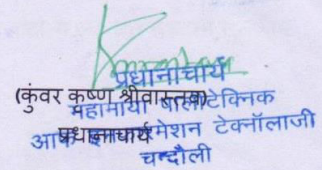 प्रधानाचार्य
(कुंवर कृष्ण श्रीवास्तव)
महामाया पालीटेक्निक
प्रधानाचार्य
आफ इन्फारमेशन टेक्नॉलाजी
चन्दौली